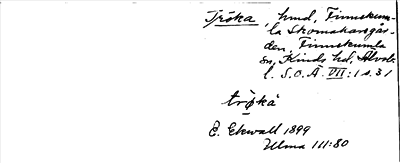 Tröka, hmd, Finnekum-
la Skomakaregår-
den, Finnekumla
sn, Kinds hd, Älvsb.
l. S.O.Ä VII:1 s. 31
trøka
E. Ekwall 1899
Ulma 111:80